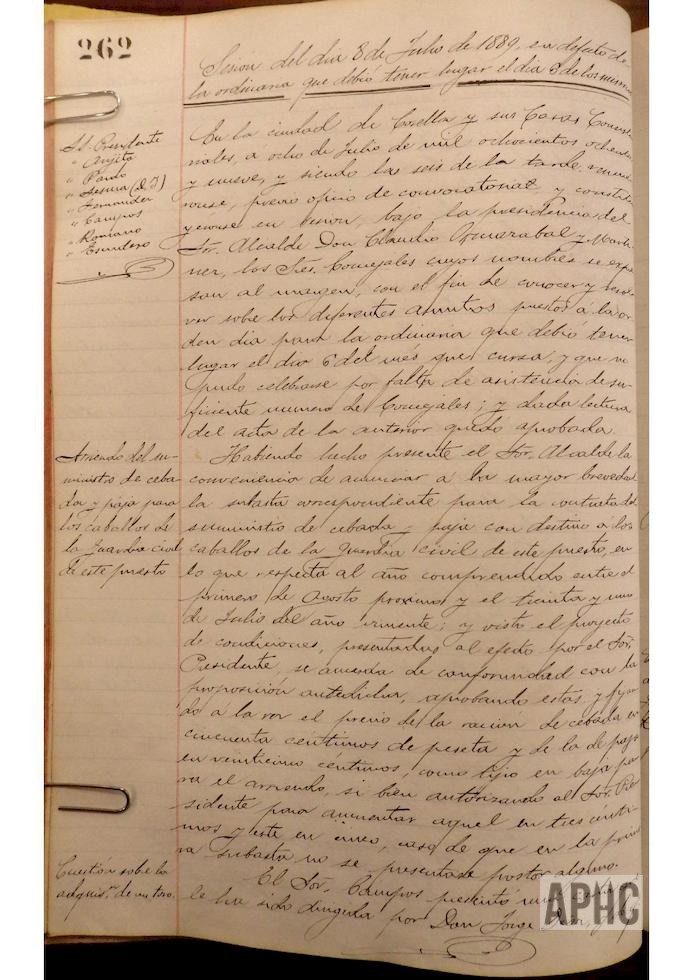 262
Sesión del dia 8 de Julio de 1889, en defecto de
la ordinaria que debió tener lugar el dia 6 de los mismos
SS. Presidente
" Arijita
" Pardo
" Sesma (D. J)
" Fernandez
" Campos
" Romano
" Escudero
En la ciudad de Corella y sus Casas Consisto-
riales, a ocho de Julio de mil ochocientos ochenta
y nueve, y siendo las seis de la tarde, reunie-
ronse, previo oficio de convocatoria, y constitu-
yeronse en sesion, bajo la presidencia del
Sor. Alcalde Don Claudio y Marti-
nez, los Sres. Concejales cuyos nombres se expre-
san al margen, con el fin de conocer y resol-
ver sobre los diferentes asuntos puestos á la or-
den dia para la ordinaria que debió tener
lugar el dia 6 del mes que cursa, y que no
pudo celebrarse por falta de asistencia de su-
ficiente numero de Concejales; y dada lectura
del acta de la anterior quedó aprobada.
Arriendo del su-
ministro de ceba-
da y paja para
los caballos de
la Guardia civil
de este puesto
Habiendo hecho presente el Sor. Alcalde la
conveniencia de anunciar a la mayor brevedad
la subasta correspondiente para la contrata del
suministro de cebada y paja con destino a los
caballos de la guardia civil de este puesto, en
lo que respecta al año comprendido entre el
primero de Agosto proximo y el treinta y uno
de Julio del año viniente; y visto el proyecto
de condiciones, presentadas al efecto por el Sor.
Presidente, se acuerda de conformidad con la
proposición antedicha, aprobando estas, y fijan-
do a la vez el precio de la ración de cebada en
cincuenta centimos de peseta y de la de paja
en veinticinco céntimos, como tipo en baja pa-
ra el arriendo, si bien autorizando al Sor. Pre-
sidente para aumentar aquel en tres cénti-
mos y este en cinco, caso de que en la prime-
ra subasta no se presentase postor alguno.
Cuestión sobre la
adquis.ⁿ de un toro.
El Sor. Campos presentó una
le ha sido dirigida por Don Jorge
APHC